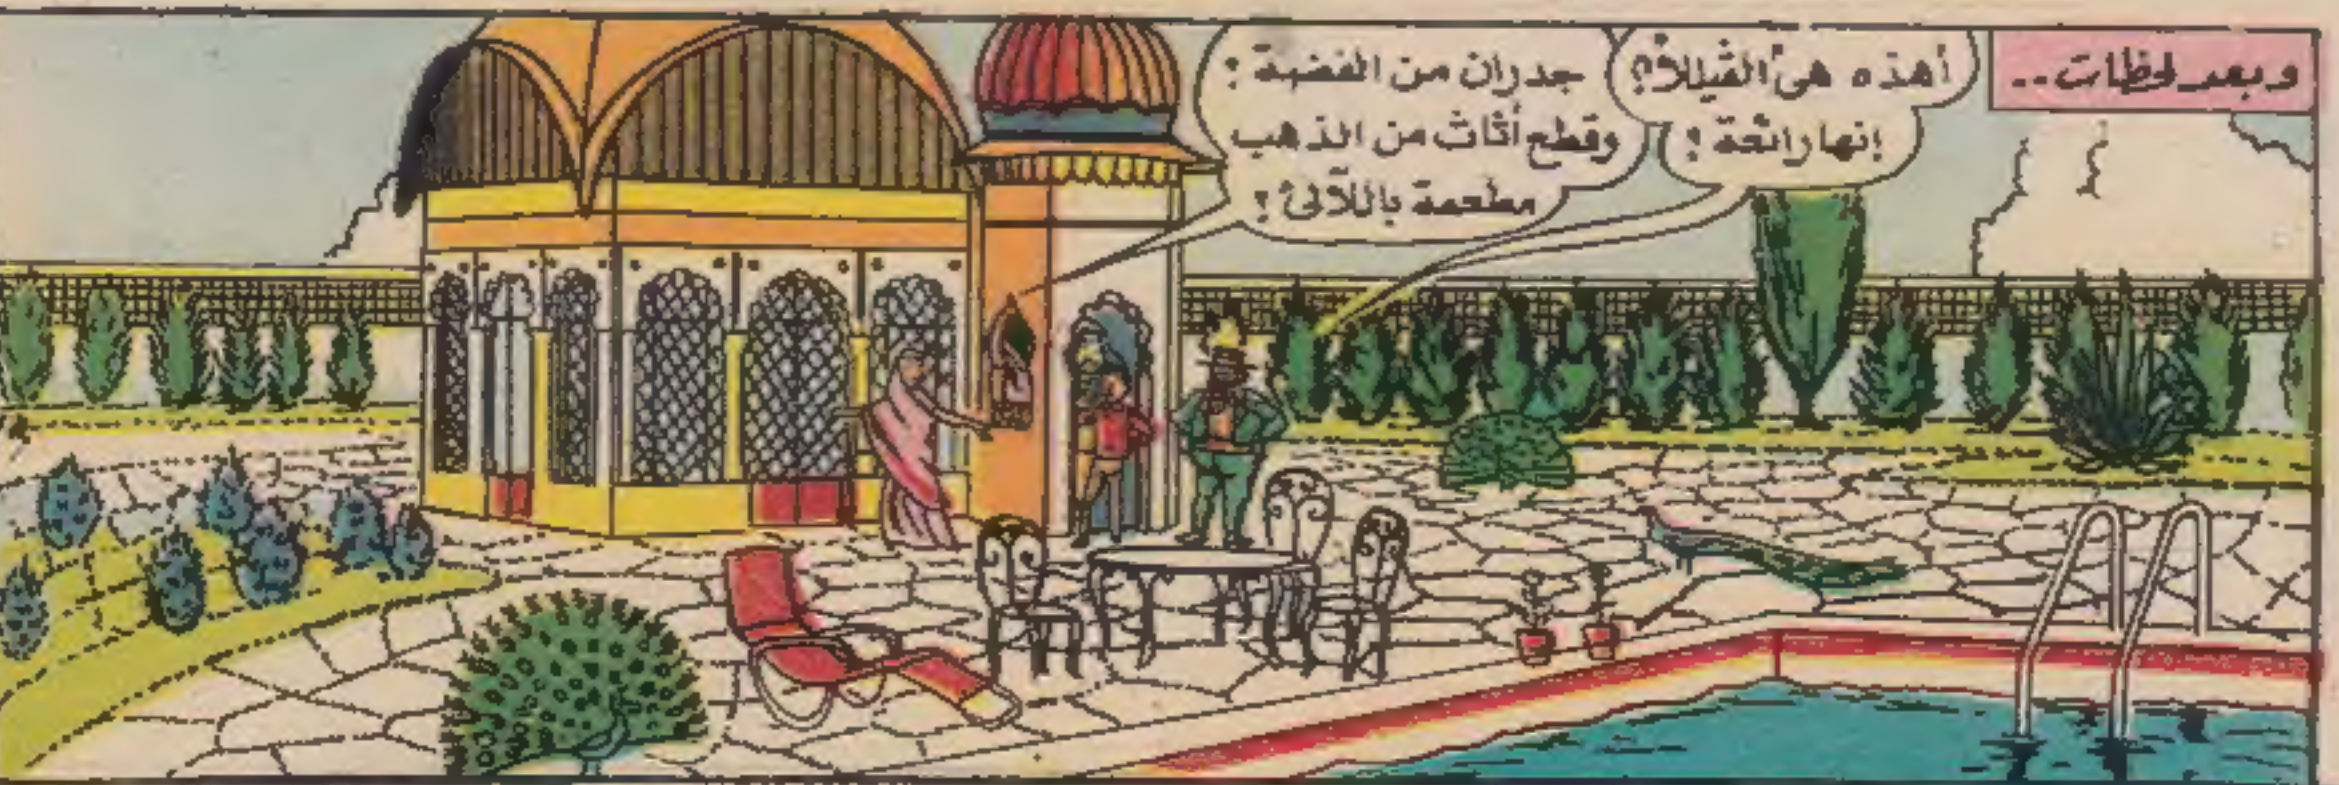 وبعد لحظات..
أهذه هى الڤيللا؟
إنها رائعة !
جدران من الفضة !
وقطع أثاث من الذهب
مطعمة باللآلئ !